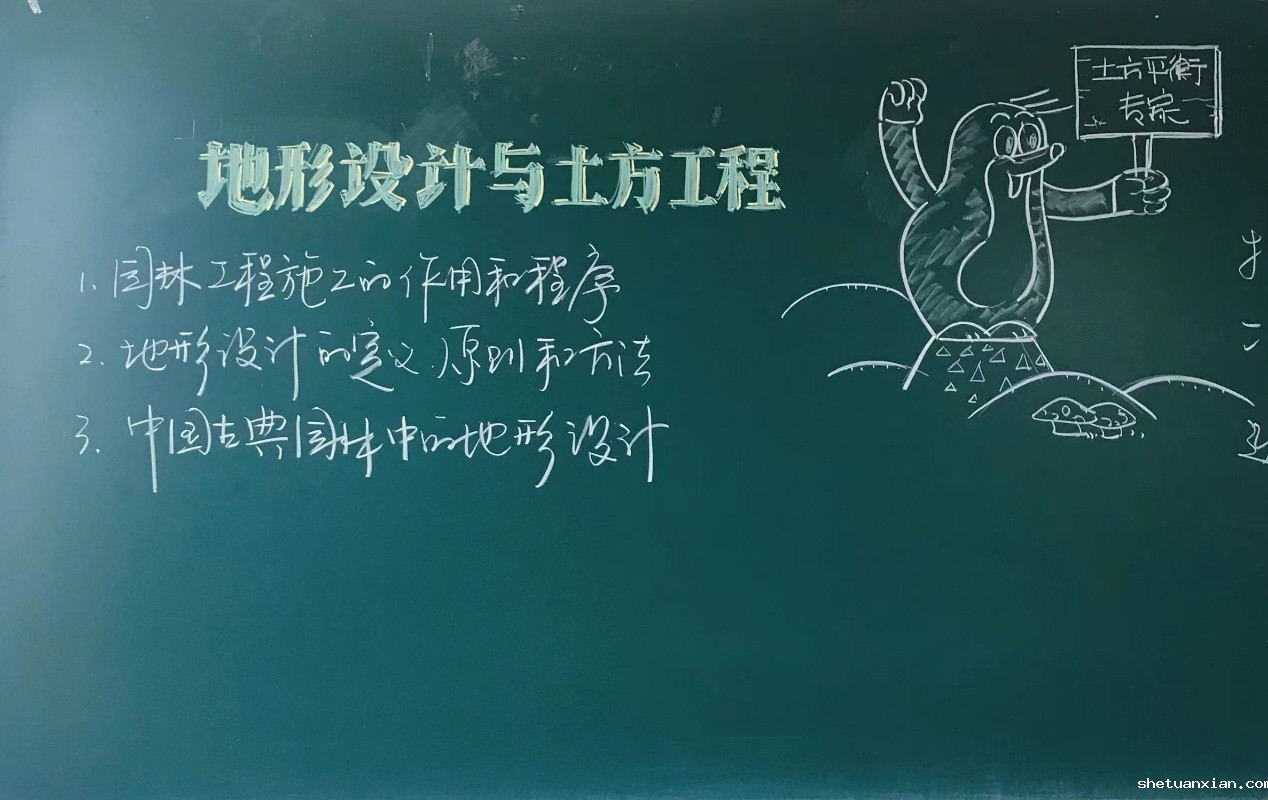 地形设计与土方工程
1. 园林工程施工的作用和程序
2. 地形设计的定义、原则和方法
3. 中国古典园林中的地形设计
土方平衡
专家
shetuanxian.com